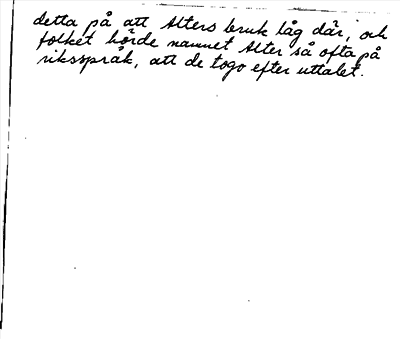 detta på att Alters bruk låg där, och
folket hörde namnet Alter så ofta på
riksspråk, att de togo efter uttalet.